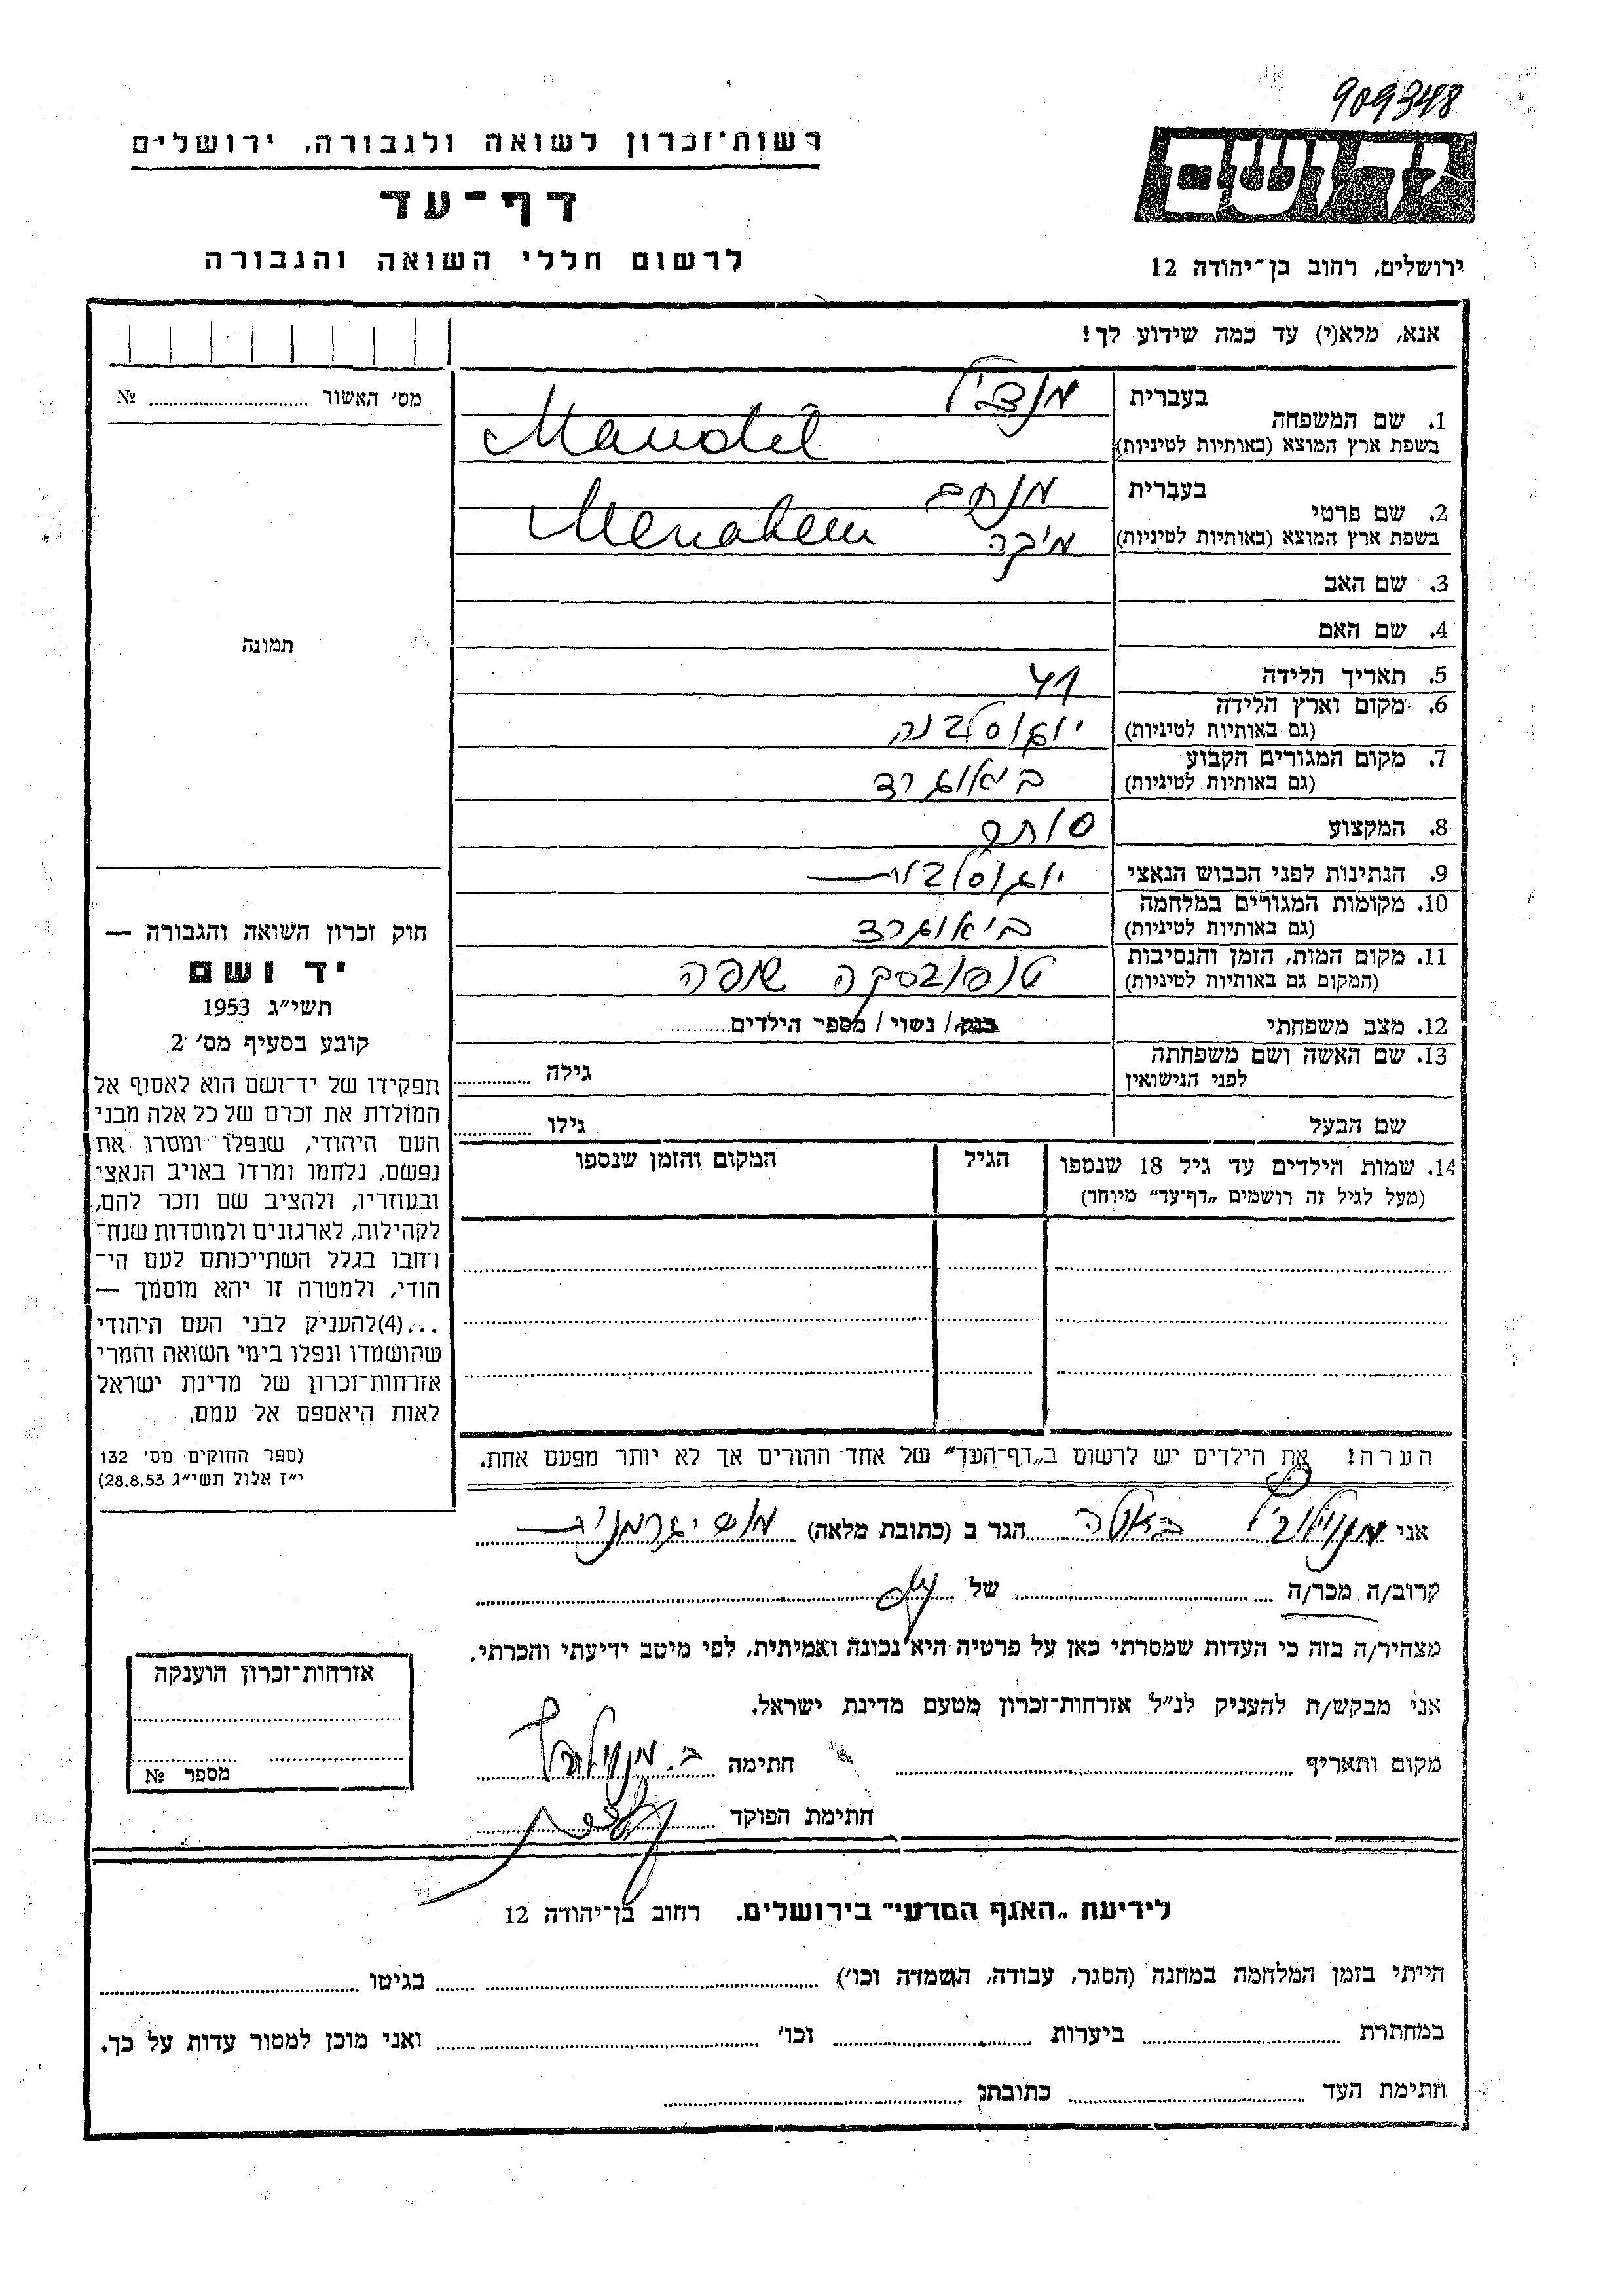 909348
יד ושם
ירושלים, רחוב בן־יהודה 12
רשות־זכרון לשואה ולגבורה, ירושלים
דף־עד
לרשום חללי השואה והגבורה
אנא, מלא(י) עד כמה שידוע לך!
בעברית
1. שם המשפחה
בשפת ארץ המוצא (באותיות לטיניות)
Mandil
2. שם פרטי בעברית מנחם
בשפת ארץ המוצא (באותיות לטיניות) Menahem
3. שם האב
4. שם האם
5. תאריך הלידה
6. מקום וארץ הלידה יוגוסלביה
(גם באותיות לטיניות)
7. מקום המגורים הקבוע
(גם באותיות לטיניות)
8. המקצוע סוחר
9. הנתינות לפני הכבוש הנאצי יוגוסלבית
10. מקומות המגורים במלחמה
(גם באותיות לטיניות)
11. מקום המות, הזמן והנסיבות
(המקום גם באותיות לטיניות)
12. מצב משפחתי רווק / נשוי / מספר הילדים
13. שם האשה ושם משפחתה
לפני הנישואין
גילה
שם הבעל גילו
14. שמות הילדים עד גיל 18 שנספו הגיל המקום והזמן שנספו
(מעל לגיל זה רושמים „דף־עד״ מיוחד)
הערה! את הילדים יש לרשום ב„דף־העד״ של אחד ההורים אך לא יותר מפעם אחת.
אני הגר ב (כתובת מלאה)
קרוב/ה מכר/ה של
מצהיר/ה בזה כי העדות שמסרתי כאן על פרטיה היא נכונה ואמיתית, לפי מיטב ידיעתי והכרתי.
אני מבקש/ת להעניק לנ״ל אזרחות־זכרון מטעם מדינת ישראל.
מקום ותאריך חתימה
חתימת הפוקד
מס׳ האשור №
תמונה
חוק זכרון השואה והגבורה —
יד ושם
תשי״ג 1953
קובע בסעיף מס׳ 2
תפקידו של יד־ושם הוא לאסוף אל
המולדת את זכרם של כל אלה מבני
העם היהודי, שנפלו ומסרו את
נפשם, נלחמו ומרדו באויב הנאצי
ובעוזריו, ולהציב שם וזכר להם,
לקהילות, לארגונים ולמוסדות שנח־
רחבו בגלל השתייכותם לעם הי־
הודי, ולמטרה זו יהא מוסמך —
...(4)להעניק לבני העם היהודי
שהושמדו ונפלו בימי השואה והמרי
אזרחות־זכרון של מדינת ישראל
לאות היאספם אל עמם.
(ספר החוקים מס׳ 132
י״ז אלול תשי״ג 28.8.53)
אזרחות־זכרון הוענקה
מספר №
לידיעת „האגף המדעי״ בירושלים. רחוב בן־יהודה 12
הייתי בזמן המלחמה במחנה (הסגר, עבודה, השמדה וכו׳) בגיטו
במחתרת ביערות וכו׳ ואני מוכן למסור עדות על כך.
חתימת העד כתובתו